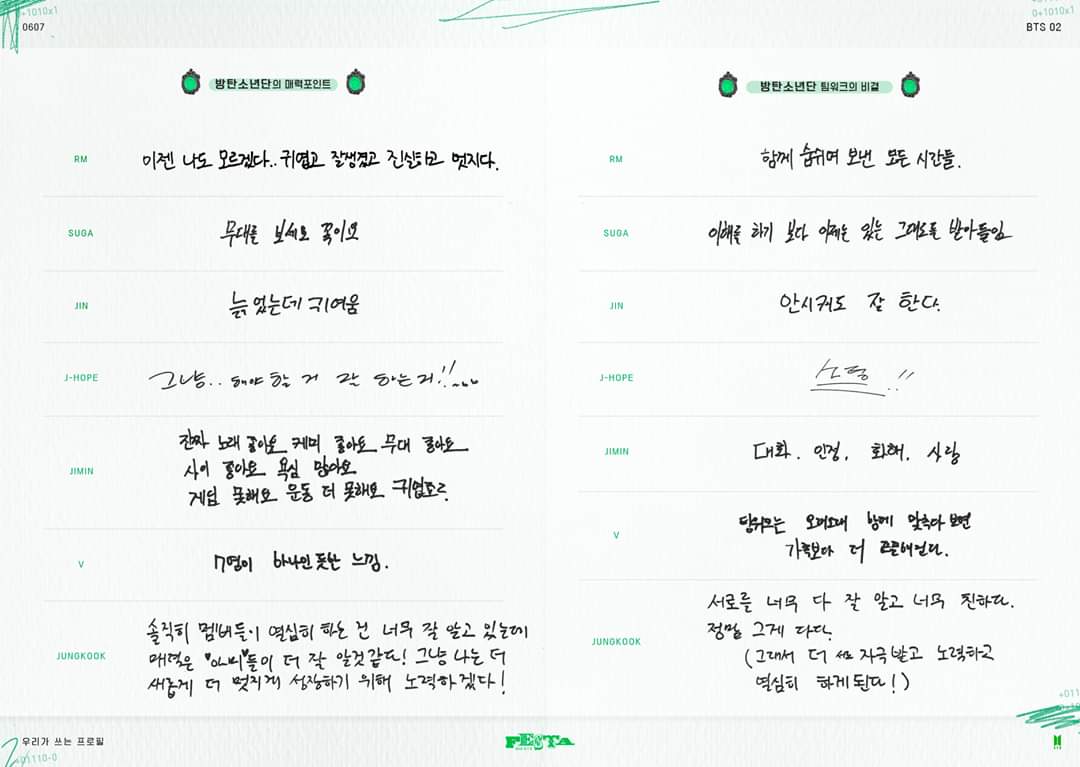 +1010x1
0607
0+1010x1
BTS 02
방탄소년단의 매력포인트
RM
이젠 나도 모르겠다.. 귀엽고 잘생겼고 진실하고 멋지다.
SUGA
무대를 보세요 꾺이요
JIN
늙었는데 귀여움
J-HOPE
그냥.. 해야 할 거 잘 하는거!!
JIMIN
진짜 노래 좋아요 케미 좋아요 무대 좋아요
사이 좋아요 욕심 많아요
게임 못해요 운동 더 못해요 귀엽고르.
V
7명이 하나인 듯한 느낌.
JUNGKOOK
솔직히 멤버들이 열심히 하는 건 너무 잘 알고 있는데
매력은 "아미"들이 더 잘 알것 같다! 그냥 나는 더
새롭게 더 멋지게 성장하기 위해 노력하겠다!
방탄소년단 팀워크의 비결
RM
함께 숨쉬며 보낸 모든 시간들.
SUGA
이해를 하기 보다 이제는 있는 그대로를 받아들임
JIN
안시켜도 잘 한다.
J-HOPE
소통!!
JIMIN
대화, 인정, 화해, 사랑
V
팀워크는 오래오래 함께 맞추다 보면
가족보다 더 끈끈해진다.
JUNGKOOK
서로를 너무 다 잘 알고 너무 친하다.
정말 그게 다다.
(그래서 더 자극받고 노력하고
열심히 하게된다!)
우리가 쓰는 프로필
+01110-0
FESTA
+011